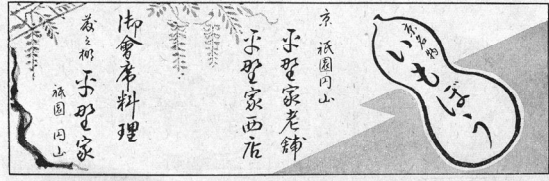 京名物
いもぼう
京 祇園円山
平野家老舗
平野家西店
御會席料理
藤之棚 平野家
祇園 円山